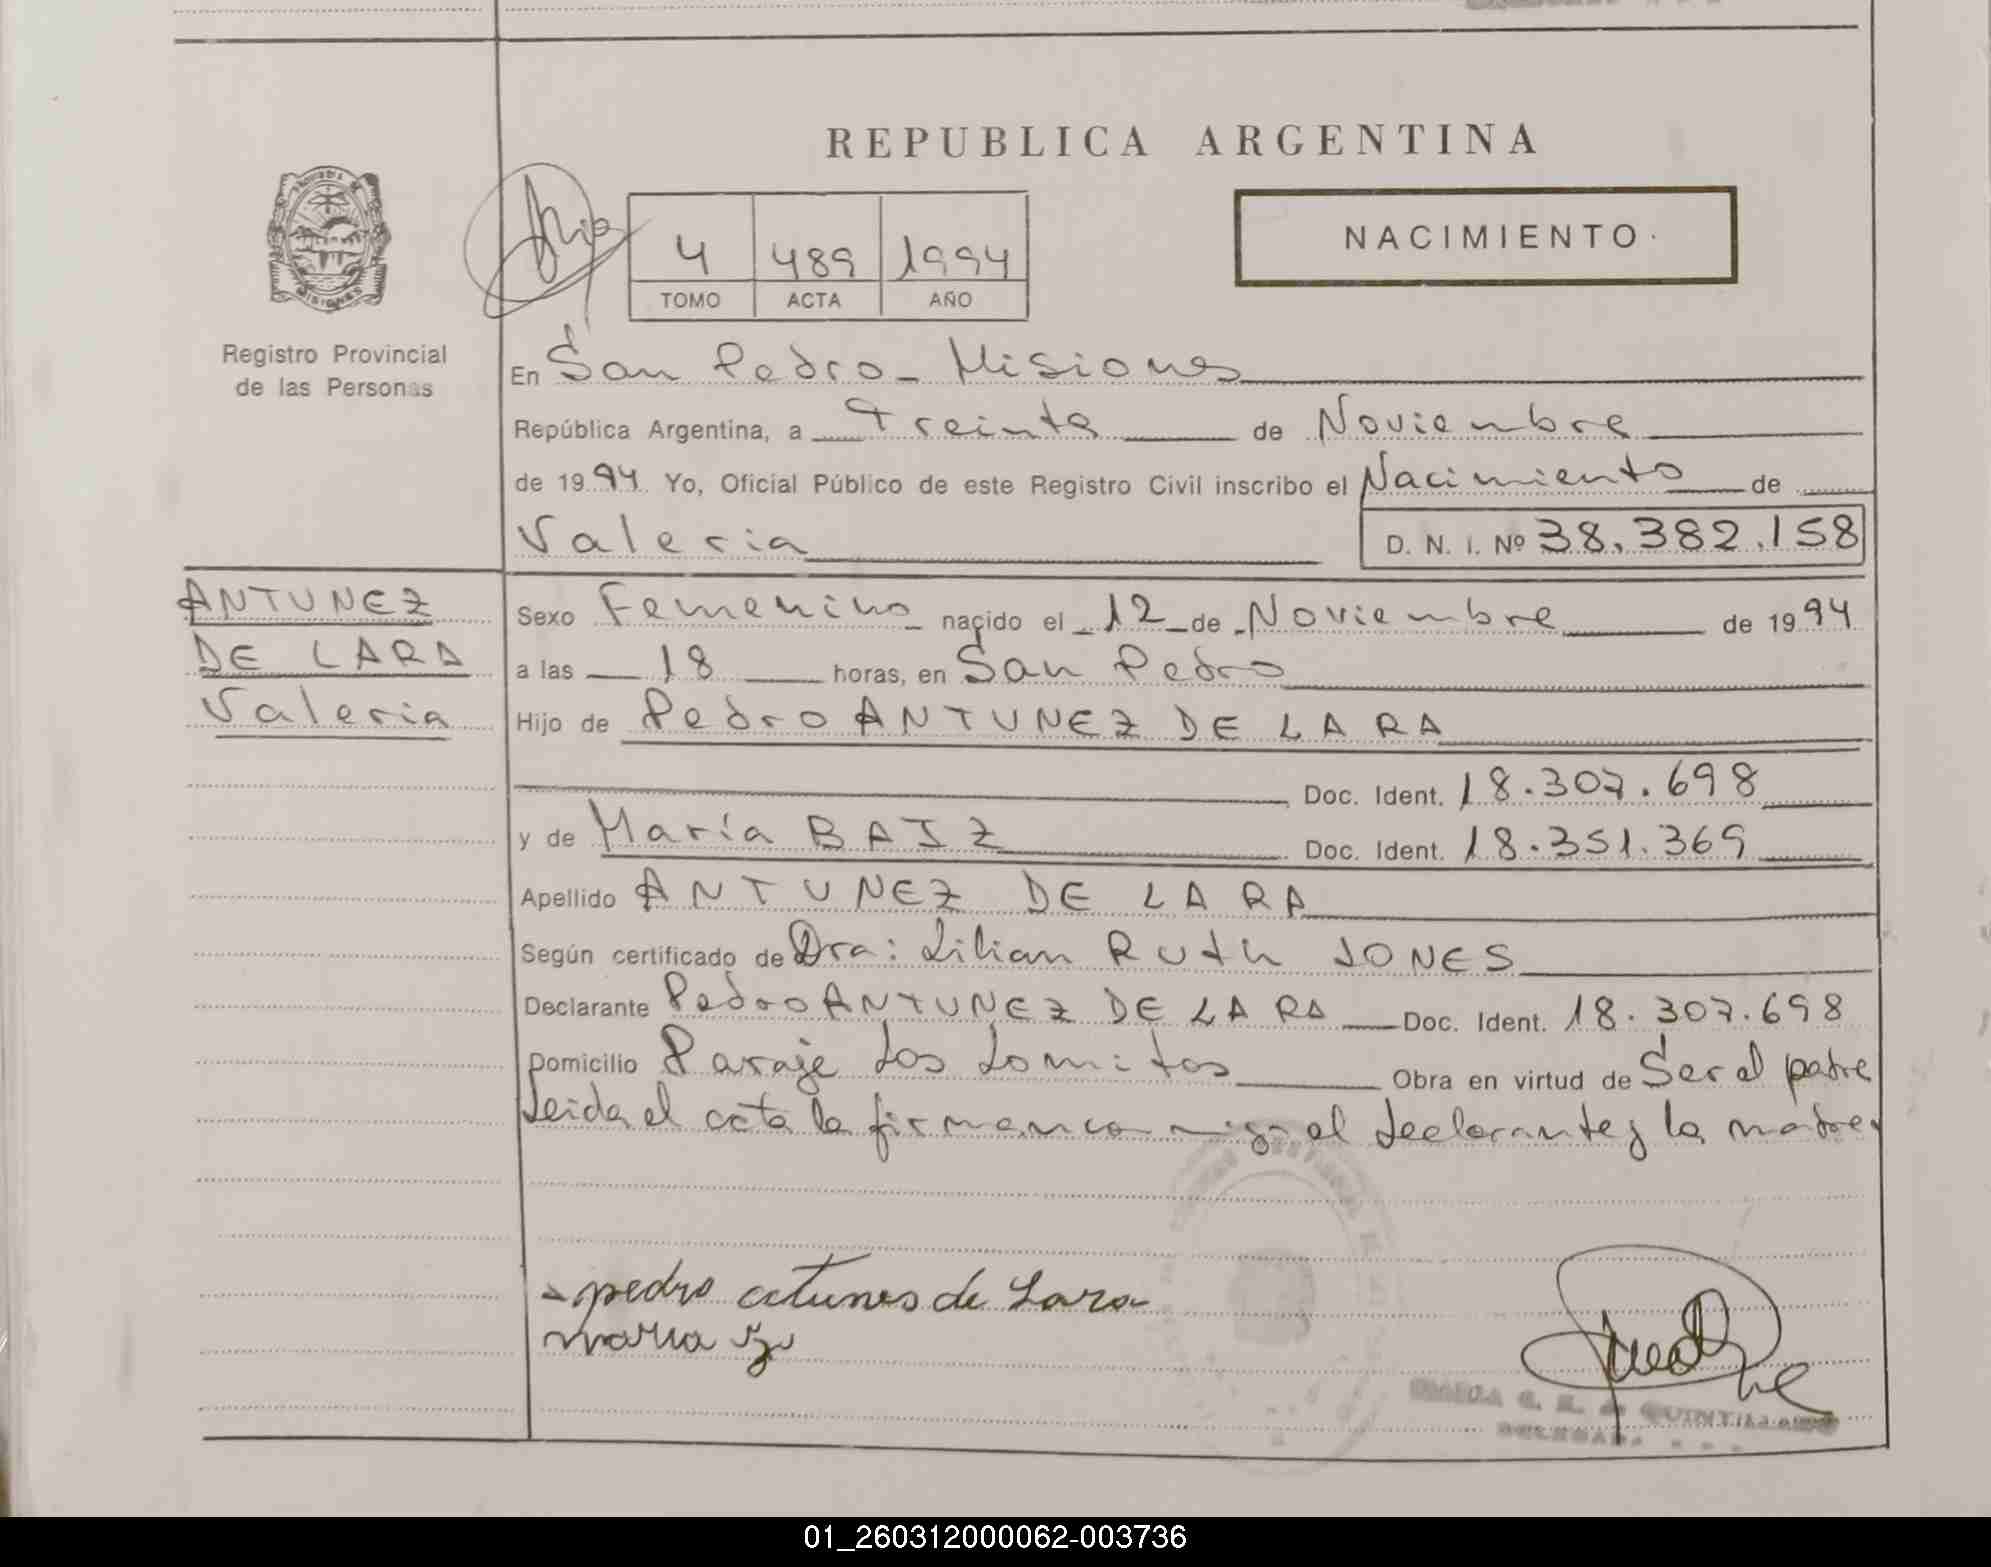 REPUBLICA ARGENTINA
NACIMIENTO
4 489 1994
TOMO ACTA AÑO
Registro Provincial
de las Personas
En San Pedro - Misiones
República Argentina, a Treinta de Noviembre
de 1994 Yo, Oficial Público de este Registro Civil inscribo el Nacimiento de
Valeria D. N. I. Nº 38.382.158
ANTUNEZ
DE LARA
Valeria
Sexo Femenino nacido el 12 de Noviembre de 1994
a las 18 horas, en San Pedro
Hijo de Pedro ANTUNEZ DE LARA
Doc. Ident. 18.307.698
y de María BAIZ Doc. Ident. 18.351.369
Apellido ANTUNEZ DE LARA
Según certificado de Dra: Lilian Ruth JONES
Declarante Pedro ANTUNEZ DE LARA Doc. Ident. 18.307.698
Domicilio Paraje Las Lomitas Obra en virtud de Ser el padre
Leida el acta la firman el declarante y la madre
pedro de Lara
maria
QUINTILLANO
01_260312000062-003736